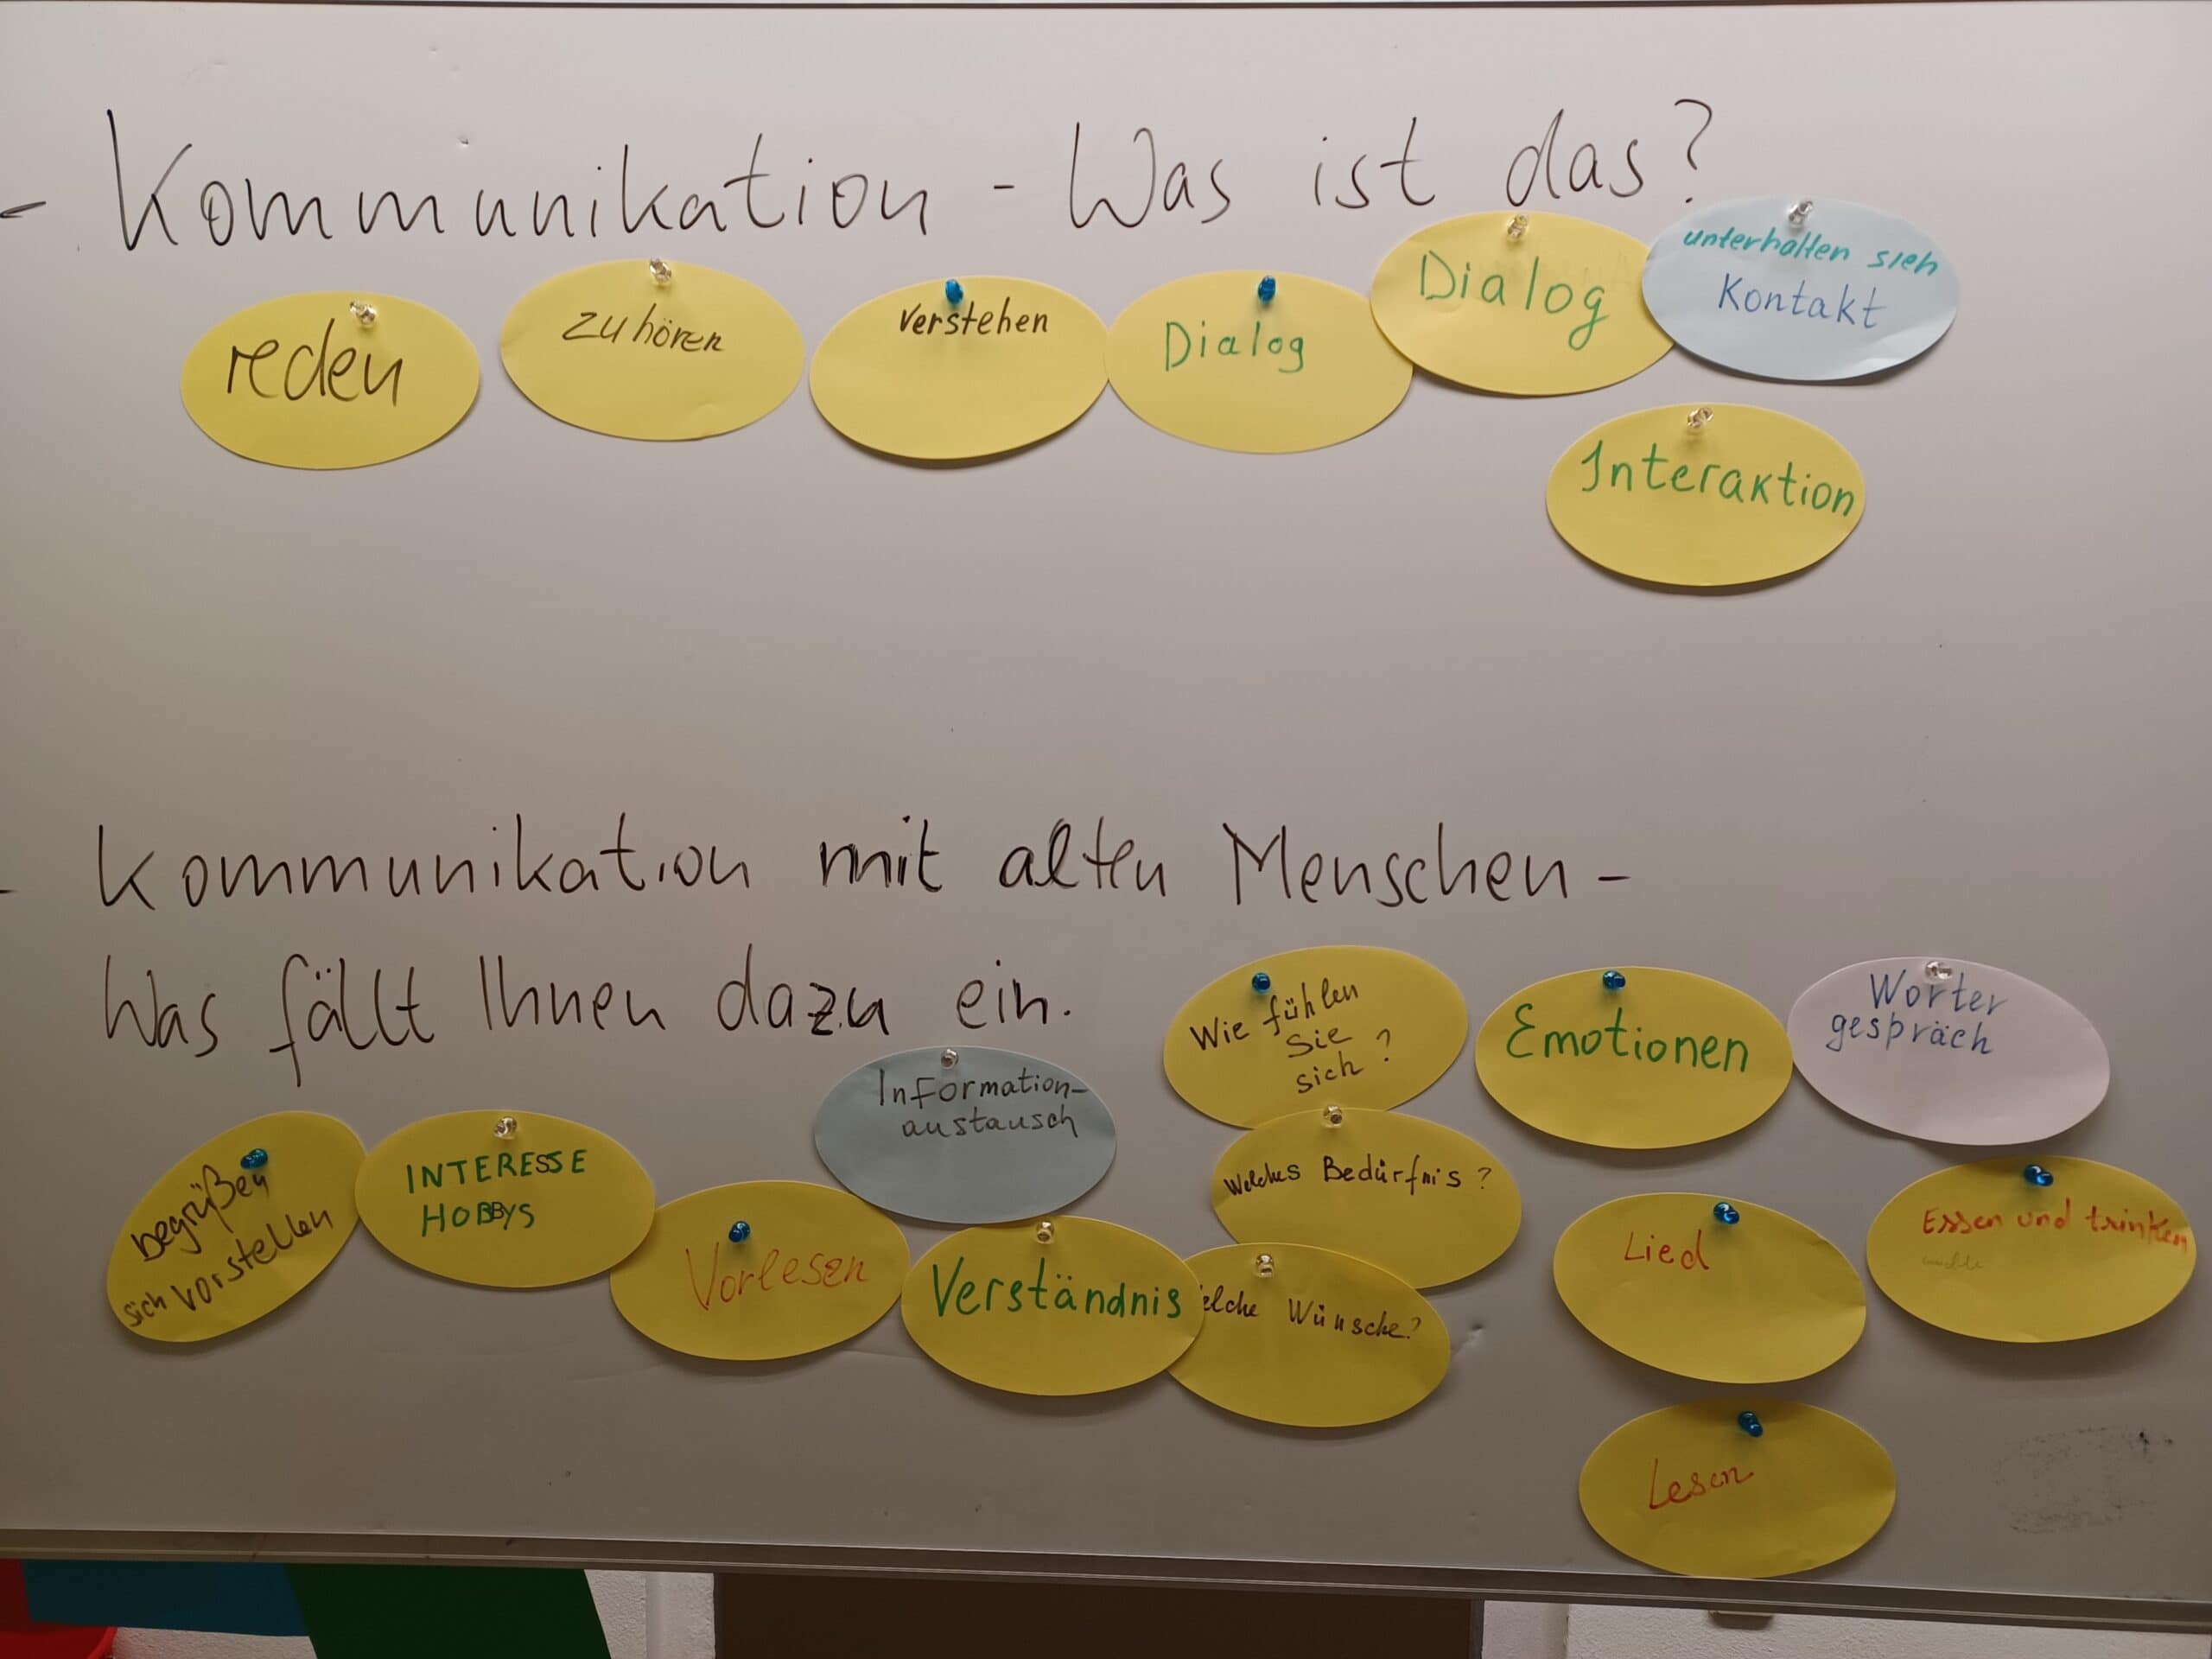 - Kommunikation - Was ist das?
reden
zuhören
verstehen
Dialog
Dialog
unterhalten sich
Kontakt
Interaktion
- Kommunikation mit alten Menschen -
Was fällt Ihnen dazu ein.
Wie fühlen
Sie
sich?
Emotionen
Wörter
gespräch
Information-
austausch
begrüßen
sich vorstellen
INTERESSE
HOBBYS
Vorlesen
Verständnis
Welches Bedürfnis?
elche Wünsche?
Lied
Essen und trinken
Lesen